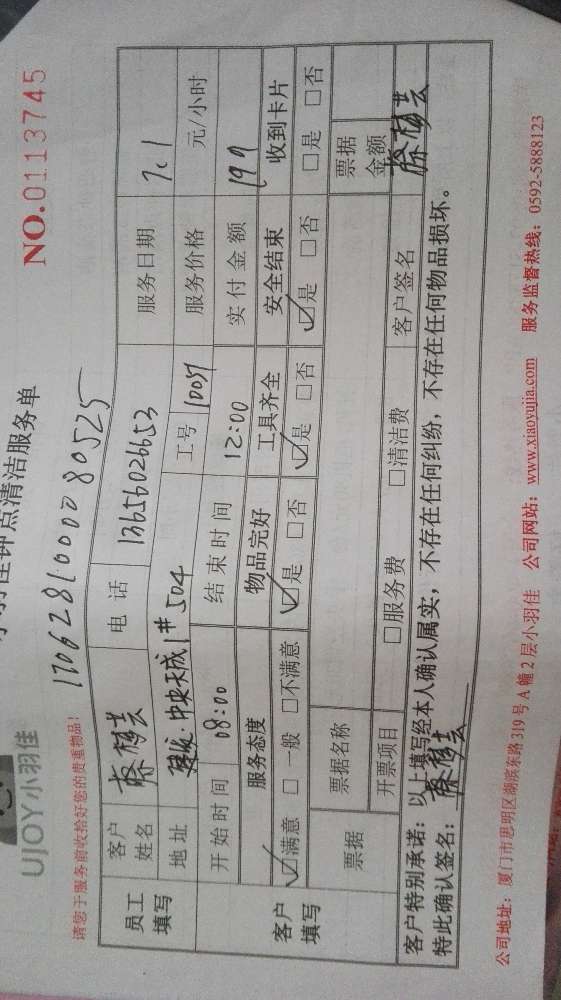 UJOY小羽佳
小羽佳钟点清洁服务单
NO.0113745
请您于服务前收拾好您的贵重物品!
170628100008 0525
员工填写
客户姓名
电话 13656026653
服务日期 7.1
地址 中央天成 1# 504
工号 10057
服务价格 元/小时
客户填写
开始时间 08:00 结束时间 12:00 实付金额 197
服务态度 物品完好 工具齐全 安全结束 收到卡片
☑满意 □一般 □不满意 ☑是 □否 ☑是 □否 ☑是 □否 □是 □否
票据 票据名称 票据金额
开票项目 □服务费 □清洁费 客户签名
客户特别承诺:以上填写经本人确认属实,不存在任何纠纷,不存在任何物品损坏。
特此确认签名:
公司地址:厦门市思明区湖滨东路319号A幢2层小羽佳 公司网站:www.xiaoyujia.com 服务监督热线:0592-5888123